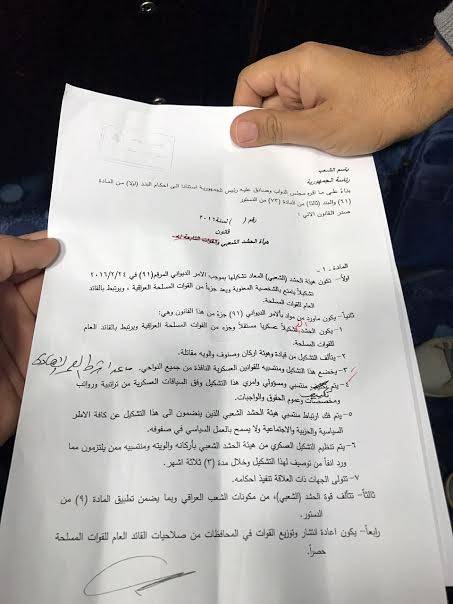 باسم الشعب
رئاسة الجمهورية
بناءً على ما اقره مجلس النواب وصادق عليه رئيس الجمهورية استنادا الى احكام البند (اولا) من المادة
(٦١) والبند (ثالثا) من المادة (٧٣) من الدستور
صدر القانون الاتي :
رقم ( ) لسنة ٢٠١٦
قانون
هيأة الحشد الشعبي والقوات التابعة له
المادة - ١ -
اولاً- تكون هيئة الحشد (الشعبي) المعاد تشكيلها بموجب الامر الديواني المرقم(٩١) في ٢٠١٦/٢/٢٤
تشكيلاً يتمتع بالشخصية المعنوية ويعد جزءاً من القوات المسلحة العراقية ، ويرتبط بالقائد
العام للقوات المسلحة.
ثانياً- يكون ماورد من مواد بالأمر الديواني (٩١) جزء من هذا القانون وهي:
١- يكون الحشد تشكيلاً عسكريا مستقلاً وجزء من القوات المسلحة العراقية ويرتبط بالقائد العام
للقوات المسلحة.
٢- يتألف التشكيل من قيادة وهيئة اركان وصنوف والويه مقاتلة.
٣- يخضع هذا التشكيل ومنتسبيه للقوانين العسكرية النافذة من جميع النواحي. ماعدا شرط العمر
٤- يتم منتسبي ومسؤولي وامري هذا التشكيل وفق السياقات العسكرية من تراتبية ورواتب
ومخصصات وعموم الحقوق والواجبات.
٥- يتم فك ارتباط منتسبي هيئة الحشد الشعبي الذين ينضمون الى هذا التشكيل عن كافة الاطر
السياسية والحزبية والاجتماعية ولا يسمح بالعمل السياسي في صفوفه.
٦- يتم تنظيم التشكيل العسكري من هيئة الحشد الشعبي بأركانه والويته ومنتسبيه ممن يلتزمون مما
ورد انفاً من توصيف لهذا التشكيل وخلال مدة (٣) ثلاثة اشهر.
٧- تتولى الجهات ذات العلاقة تنفيذ احكامه.
ثالثاً- تتألف قوة الحشد (الشعبي)، من مكونات الشعب العراقي وبما يضمن تطبيق المادة (٩) من
الدستور.
رابعاً- يكون اعادة انتشار وتوزيع القوات في المحافظات من صلاحيات القائد العام للقوات المسلحة
حصراً.